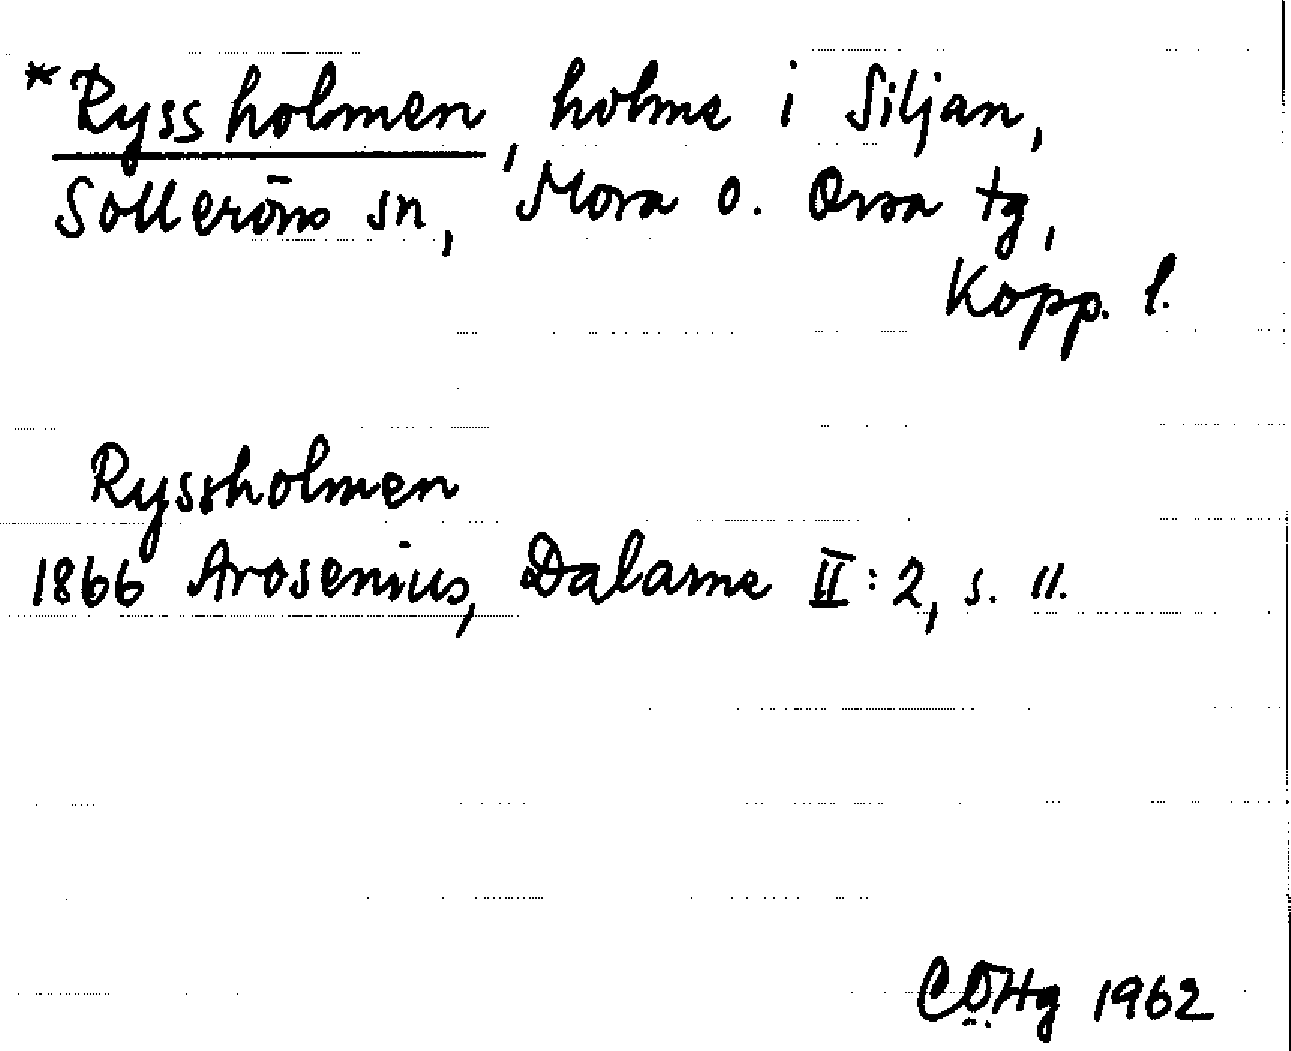 *Ryssholmen, holme i Siljan,
Solleröns sn, Mora o. Orsa tg,
Kopp. l.
Ryssholmen
1866 Arosenius, Dalarne II:2, s. 11.
CÖHg 1962